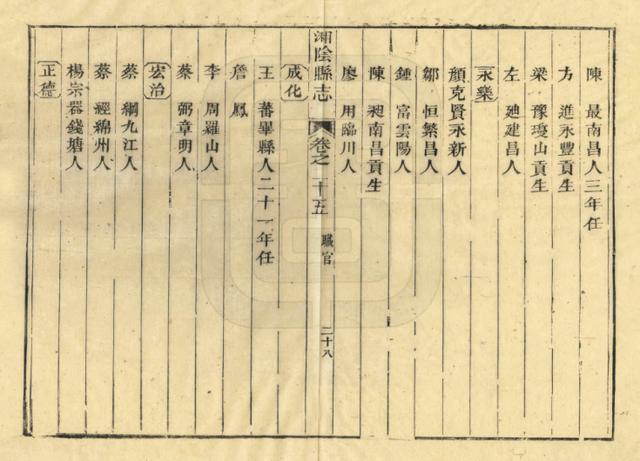 陳　最南昌人三年任
方　進永豐貢生
梁　豫瓊山貢生
左　廸建昌人
永樂
顏克賢永新人
鄒　恒繁昌人
鍾　富雲陽人
陳　昶南昌貢生
廖　用臨川人
湘陰縣志　卷之二十五　職官　二十八
成化
王　蕃畢縣人二十一年任
詹　鳳
李　周羅山人
蔡　弼章明人
宏治
蔡　綱九江人
蔡　經綿州人
楊宗器錢塘人
正德